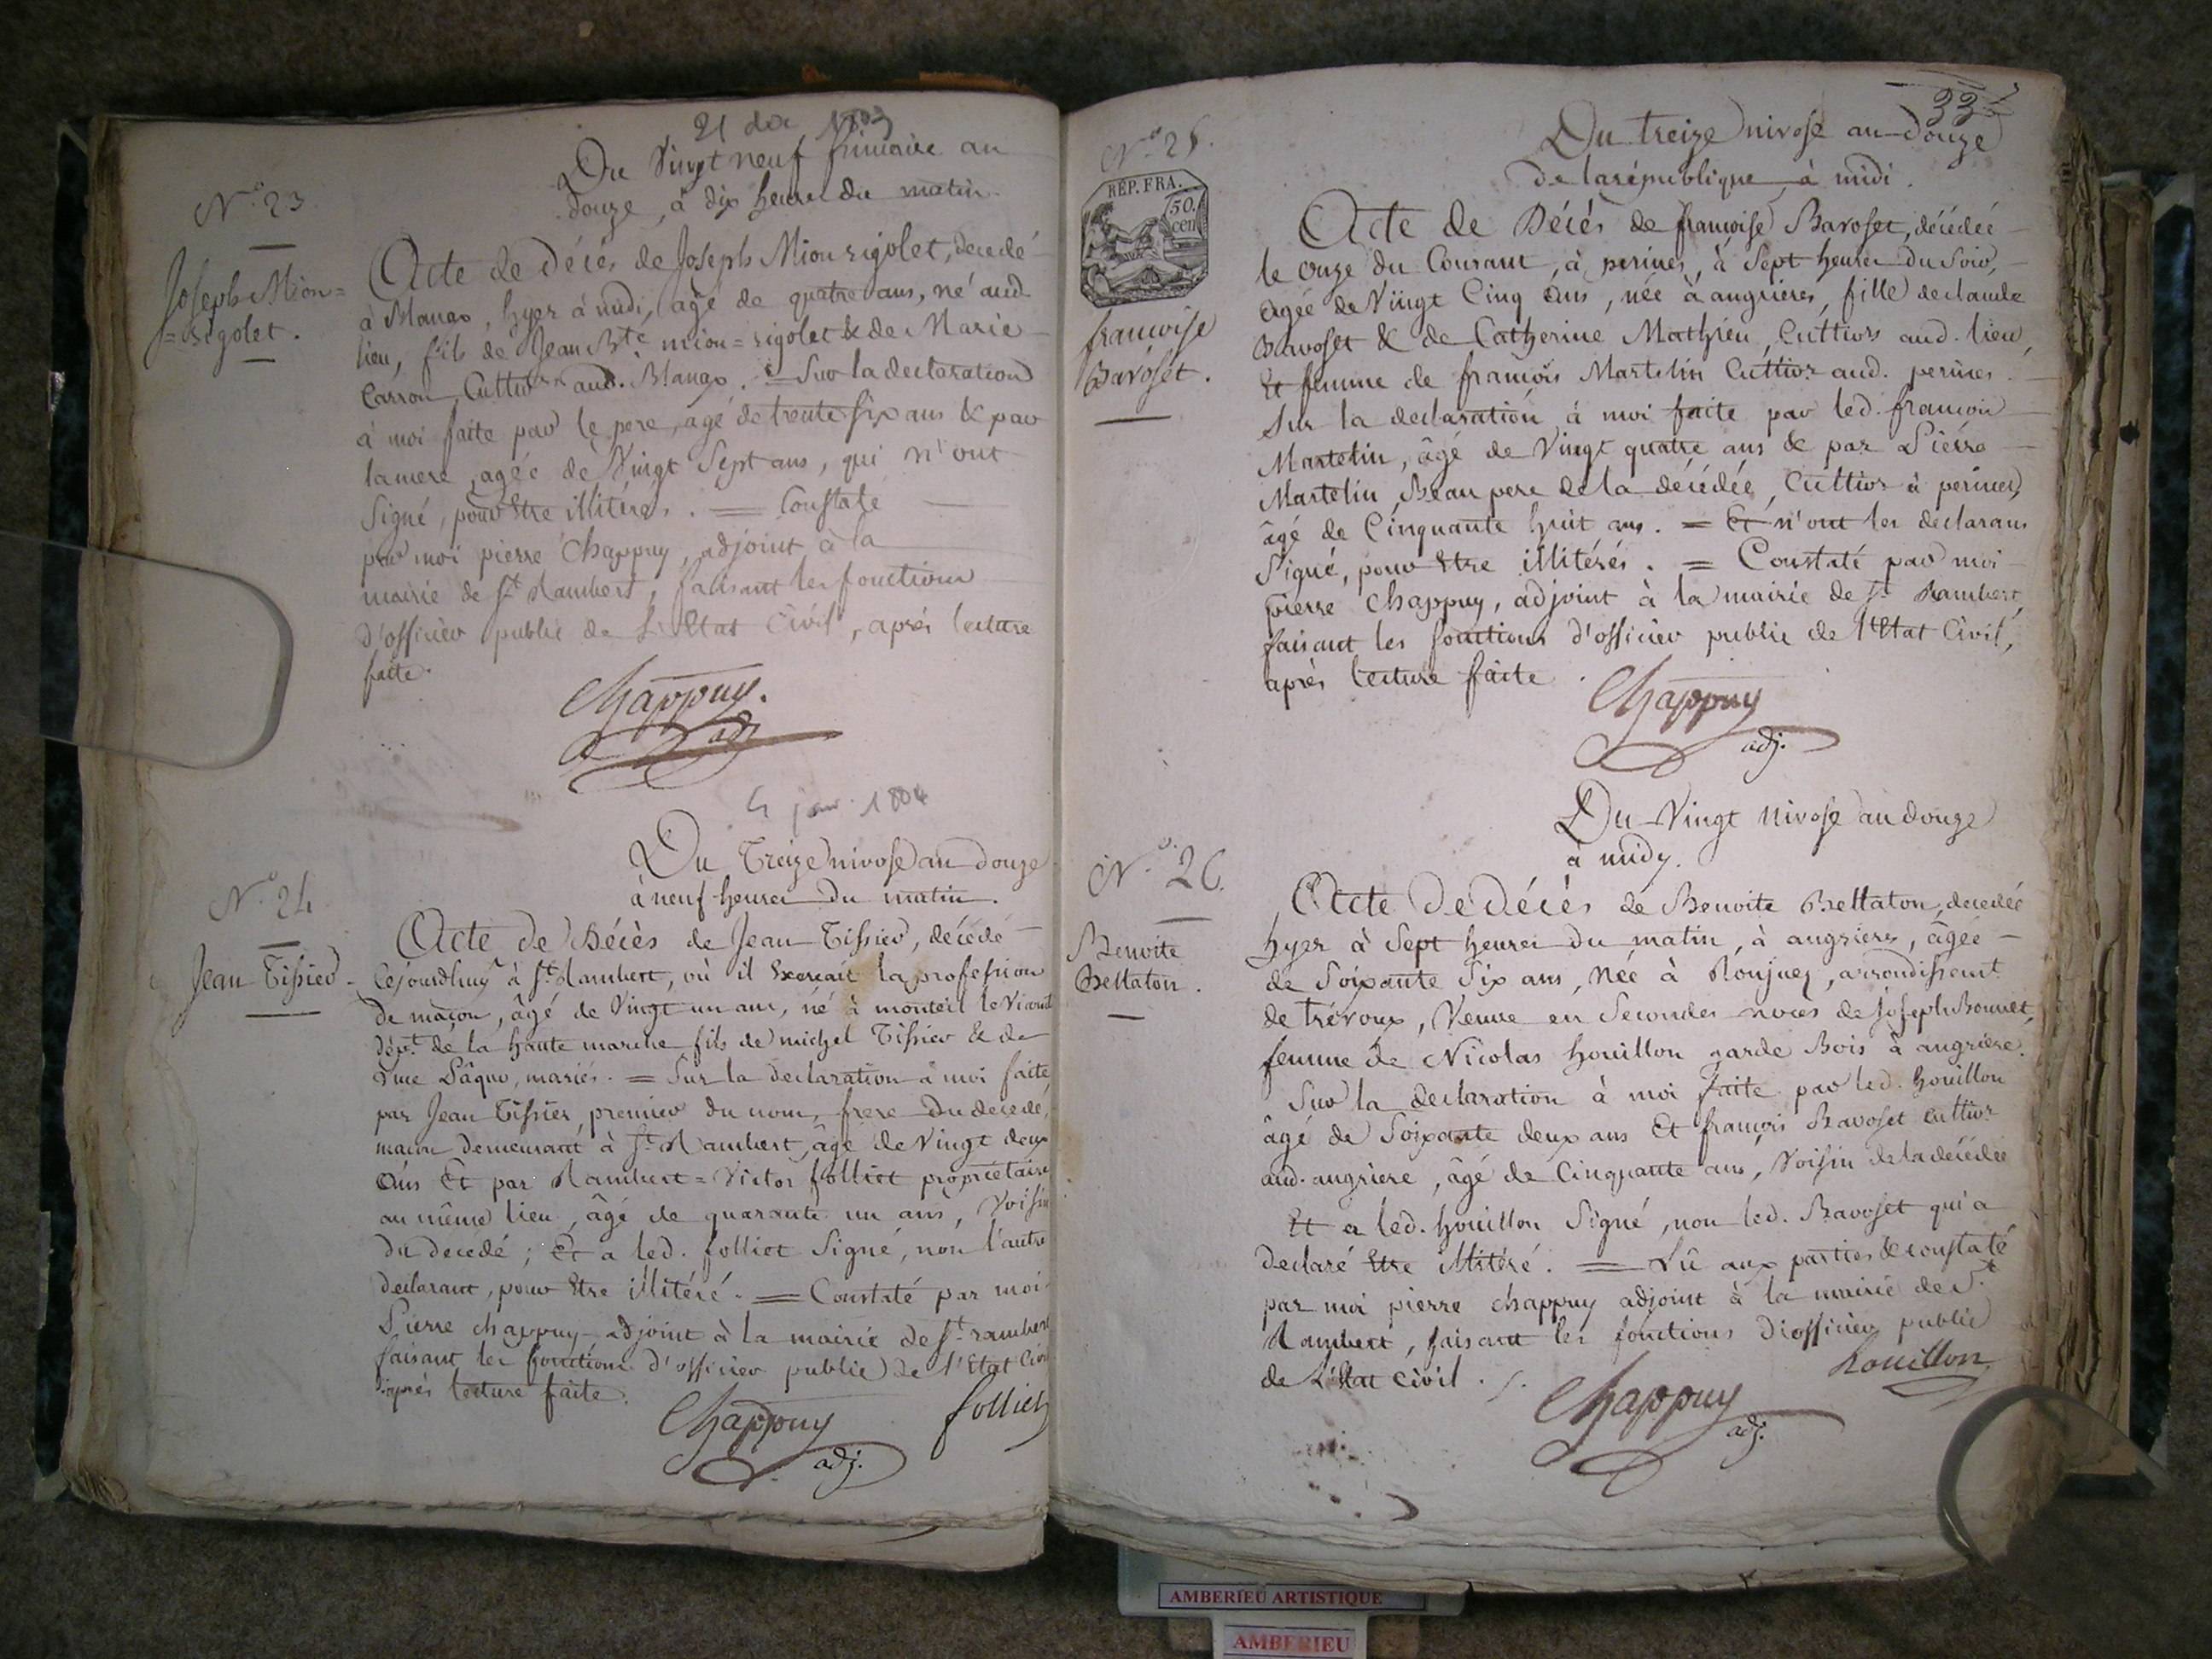 21 dec 1803
Du Vingt neuf frimaire an
douze, à dix heures du matin.
N.o 23
Joseph Mion=
=rigolet.
Acte de décès de Joseph Mion rigolet, décédé
à Blanas, hyer à midi, agé de quatre ans, né aud.
lieu, fils de Jean Bte mion=rigolet & de Marie
Carron, Culttivrs aud. Blanas. = Sur la declaration
à moi faite par le pere, agé de trente six ans & par
la mere, agée de Vingt Sept ans, qui n'ont
Signé, pour être illitérés. = Constaté
par moi pierre Chappuy, adjoint à la
mairie de St Rambert, faisant les fonctions
d'officier public de L'Etat Civil, aprés lecture
faite.
Chappuy.
adj
4 janv. 1804
Du Treize nivose an douze
à neuf heures du matin.
N.o 24
Jean Tissier
Acte de Décès de Jean Tissier, décédé
Cejourdhuy à St Rambert, où il Exercait la profession
de maçon, âgé de Vingt un ans, né à monteil le Vicomte
dépt. de la haute marche fils de michel Tissier & de
Pâquo, mariés. = Sur la declaration à moi faite
par Jean Tissier premier du nom, frere du decedé,
macon demeurant à St Rambert, âgé de Vingt deux
Ans Et par Rambert=Victor folliet propriétaire
au même lieu, âgé de quarante un ans, Voisin
du decedé; Et a led. folliet Signé, non l'autre
declarant, pour Etre illitéré. = Constaté par moi
Pierre chappuy adjoint à la mairie de St rambert
faisant les fonctions d'officier public de l'Etat Civil
après lecture faite.
Chappuy
adj.
folliet
33
N.o 25.
RÉP. FRA.
50.
cen
francoise
Bavoset.
Du treize nivose an douze
de la république à midi.
Acte de Décés de francoise Bavoset, décédée
le onze du Courant, à perines, à Sept heures du Soir,
agée de Vingt Cinq ans, née à angrieres, fille declaude
Bavoset & de Catherine Mathieu, Culttivrs aud. lieu,
Et femme de francois Martelin Culttivr aud. perines.
Sur la declaration à moi faite par led. francois
Martelin, âgé de Vingt quatre ans & par Pierre
Martelin, Beau pere de la décédée, Culttivr à perines,
âgé de Cinquante huit ans. = Et n'ont les declarans
Signé, pour Etre illitérés. = Constaté par moi
pierre Chappuy, adjoint à la mairie de St Rambert,
faisant les fonctions d'officier public de l'Etat Civil,
après lecture faite.
Chappuy
adj.
Du Vingt nivose an douze
à midy.
N.o 26.
Benoite
Bellaton.
Acte de décés de Benoite Bellaton, decedée
hyer à Sept heures du matin, à angrieres, âgée
de Soixante Six ans, Née à Ronjuex, arrondissemt.
de trévoux, Veuve en Secondes noces de Joseph Bonnet,
femme de Nicolas houillon garde Bois à angriere.
Sur la declaration à moi faite par led. houillon
âgé de Soixante deux ans Et francois Bavoset culttivr
aud. angriere, âgé de Cinquante ans, Voisin de la décédée
Et a led. houillon Signé, non led. Bavoset qui a
declaré Etre illitéré. = Lû aux parties & constaté
par moi pierre chappuy adjoint à la mairie de St
Rambert, faisant les fonctions d'officier public
de L'Etat civil.
houillon
Chappuy
adj.
AMBERIEU ARTISTIQUE
AMBERIEU